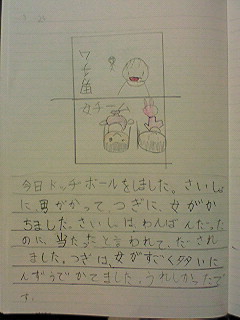 女チーム
今日ドッヂボールをしました。さいしょ
に男がかって、つぎに、女がか
ちました。さいしょは、わんばんだった
のに、当たったと言われて、だされ
ました。つぎは、女がすごく多いに
んずうでかてました。うれしかったで
す。